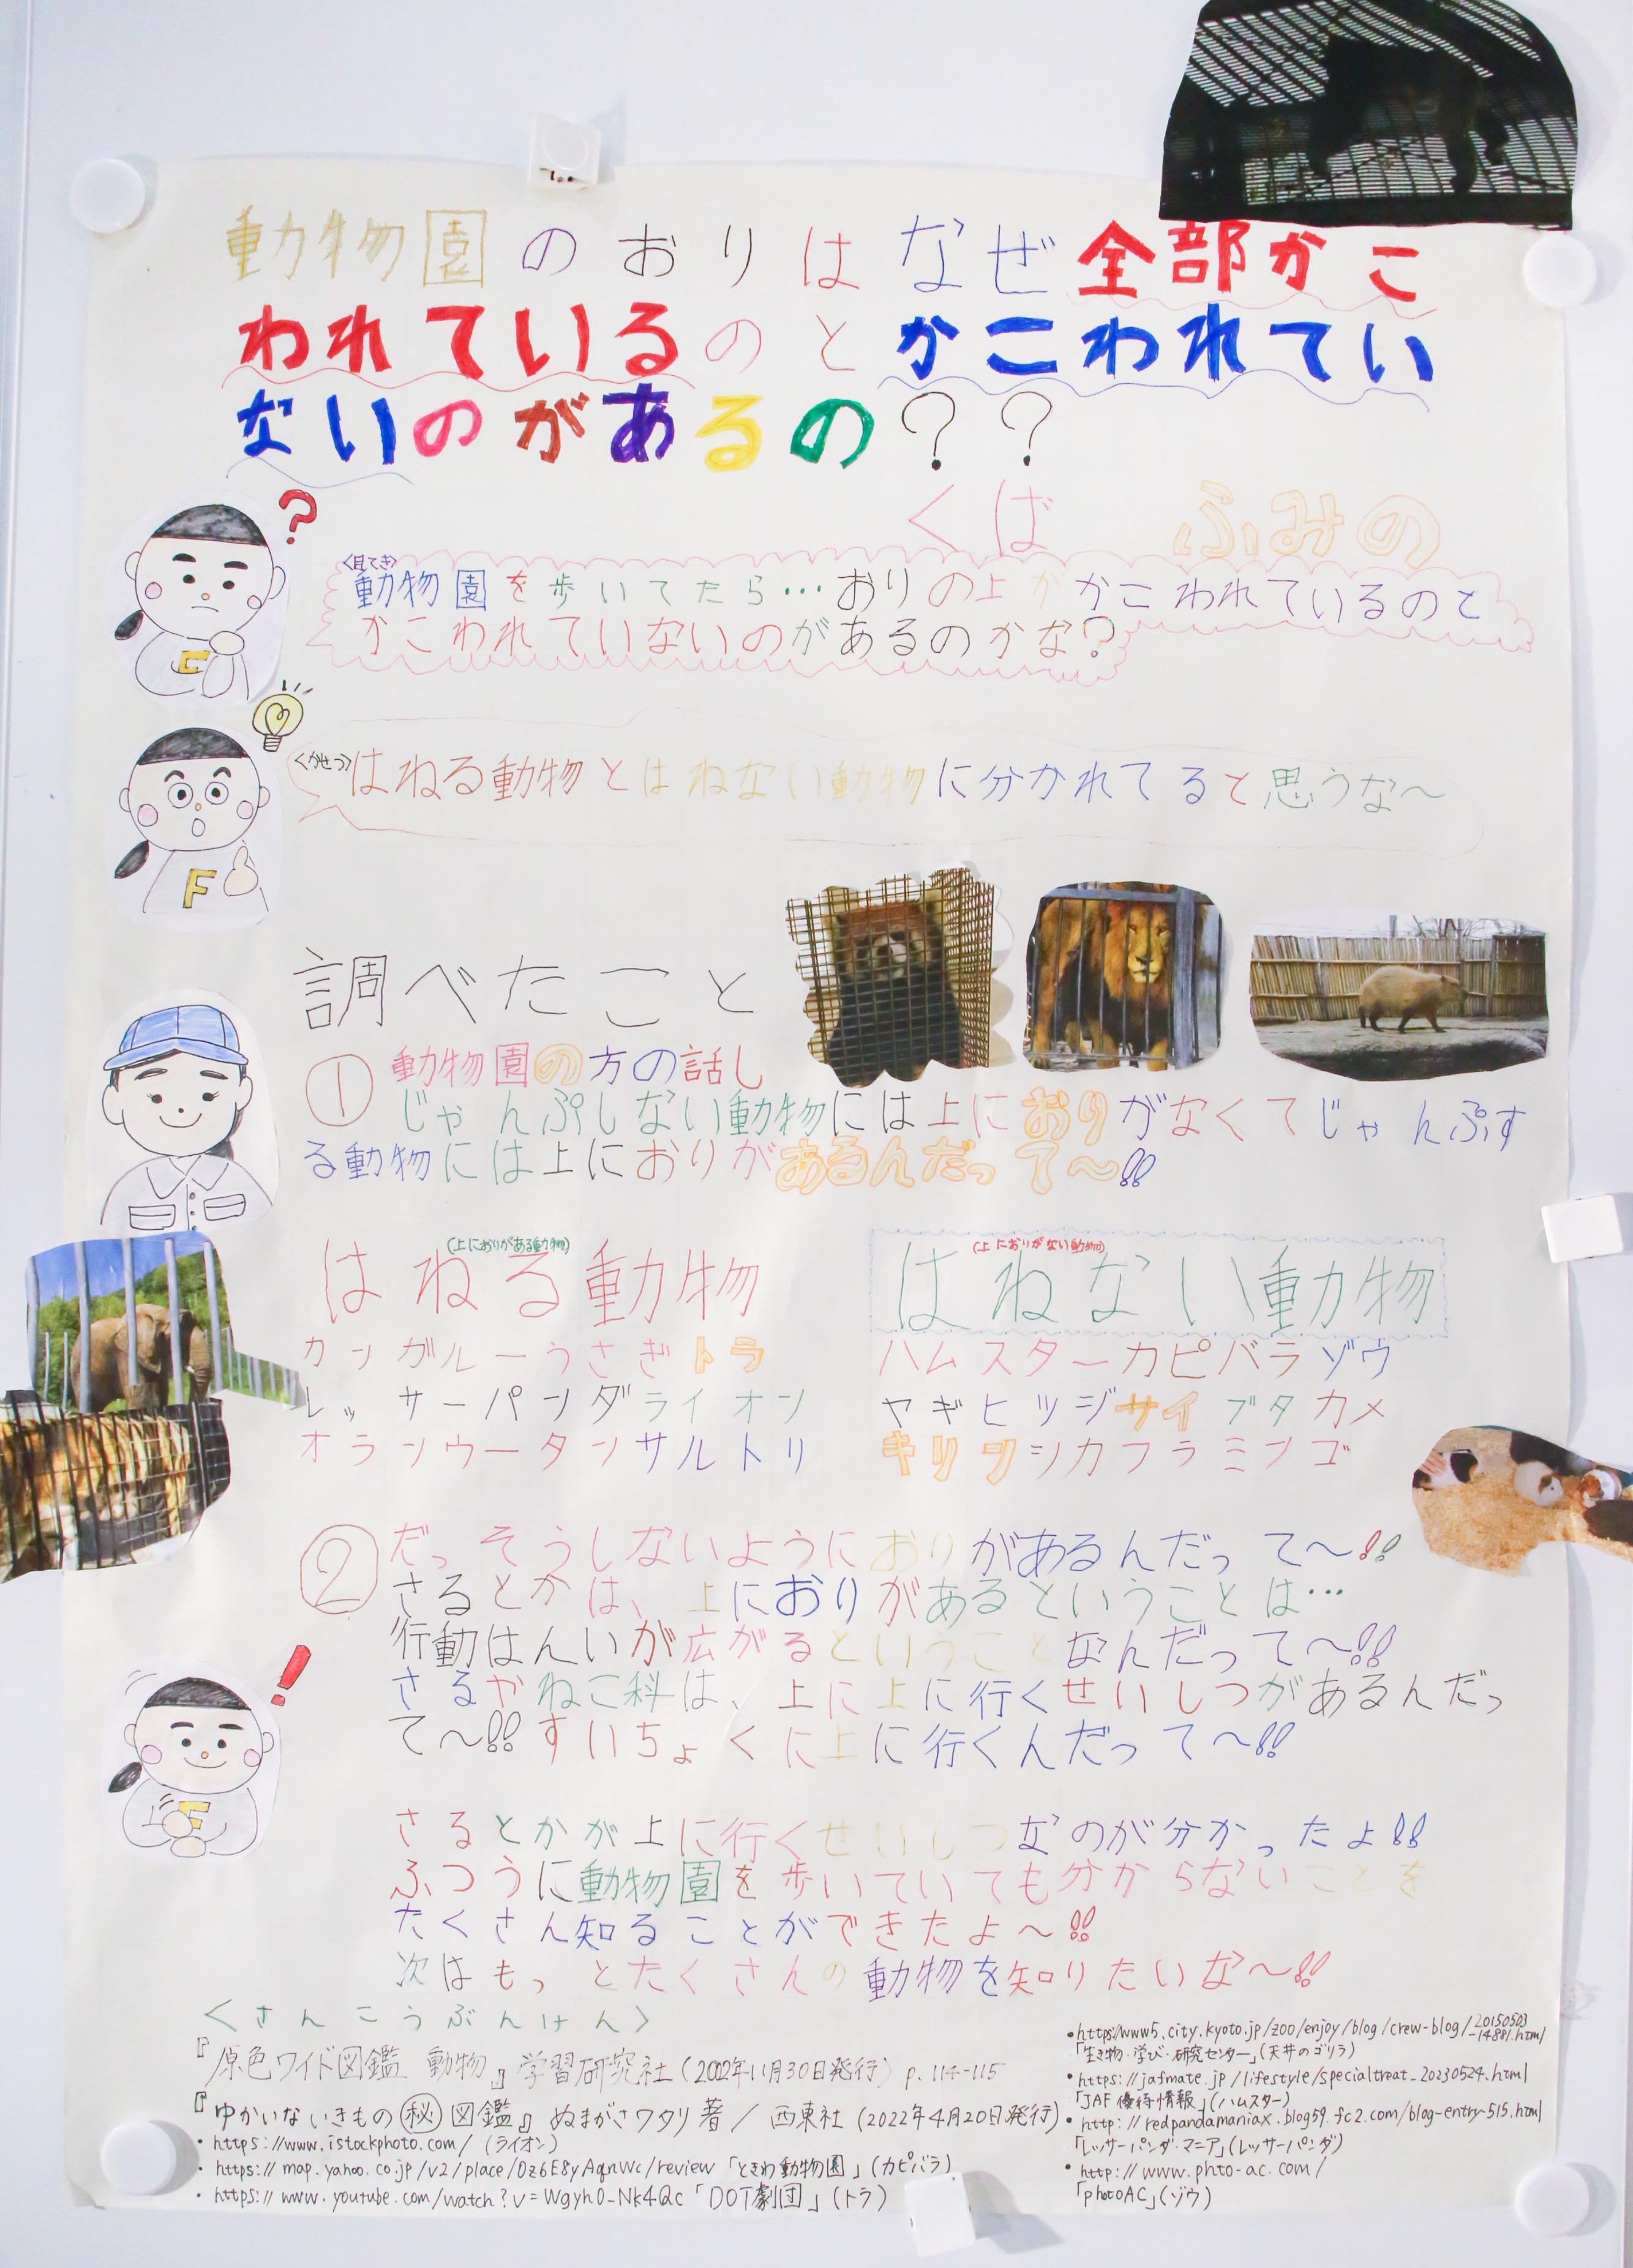 動物園のおりはなぜ全部かこ
われているのとかこわれてい
ないのがあるの??
くば ふみの
?
<目てき>
動物園を歩いてたら…おりの上がかこわれているのと
かこわれていないのがあるのかな?
E
<かせつ>
はねる動物とはねない動物に分かれてると思うな~
F
調べたこと
① 動物園の方の話し
じゃんぷしない動物には上におりがなくてじゃんぷす
る動物には上におりがあるんだって~!!
(上におりがある動物)
はねる動物
カンガルーうさぎトラ
レッサーパンダライオン
オランウータンサルトリ
(上におりがない動物)
はねない動物
ハムスターカピバラゾウ
ヤギヒツジサイブタカメ
キリンシカフラミンゴ
② だっそうしないようにおりがあるんだって~!!
さるとかは、上におりがあるということは…
行動はんいが広がるということなんだって~!!
さるやねこ科は、上に上に行くせいしつがあるんだっ
て~!!すいちょくに上に行くんだって~!!
!
F
さるとかが上に行くせいしつなのが分かったよ!!
ふつうに動物園を歩いていても分からないことを
たくさん知ることができたよ~!!
次はもっとたくさんの動物を知りたいな~!!
<さんこうぶんけん>
『原色ワイド図鑑 動物』学習研究社(2002年11月30日発行) p.114-115
『ゆかいないきもの㊙図鑑』ぬまがさワタリ著/西東社(2022年4月20日発行)
・https://www.istockphoto.com/ (ライオン)
・https://map.yahoo.co.jp/v2/place/Dz6E8yAqnWc/review「ときわ動物園」(カピバラ)
・https://www.youtube.com/watch?v=Wgyh0-Nk4Qc「DOT劇団」(トラ)
・https://www5.city.kyoto.jp/zoo/enjoy/blog/crew-blog/20150503
-14881.html
「生き物・学び・研究センター」(天井のゴリラ)
・https://jafmate.jp/lifestyle/specialtreat_20230524.html
「JAF優待情報」(ハムスター)
・http://redpandamaniax.blog59.fc2.com/blog-entry-515.html
「レッサーパンダ・マニア」(レッサーパンダ)
・http://www.phto-ac.com/
「photoAC」(ゾウ)